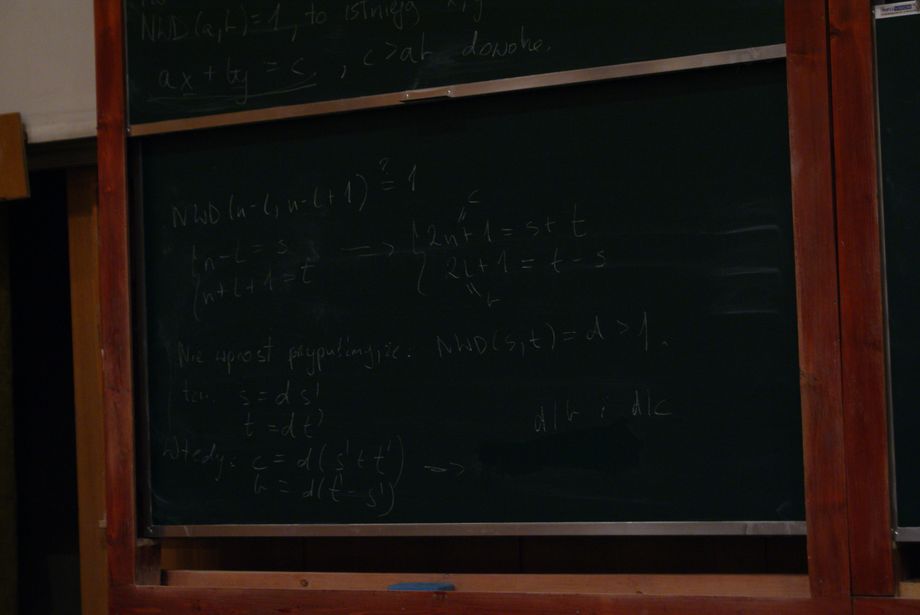 NWD(a,b)=1, to istnieją x,y
ax + by = c, c>ab dowolne.
NWD(n-l, n-l+1) ?= 1
{ n-l = s => { 2n+1 = s+t
{ n+l+1 = t { 2l+1 = t-s
c
b
Nie wprost przypuśćmy, że: NWD(s,t) = d > 1.
tzn. s = ds'
t = dt'
d|b i d|c
Wtedy: c = d(s'+t') =>
b = d(t'-s')